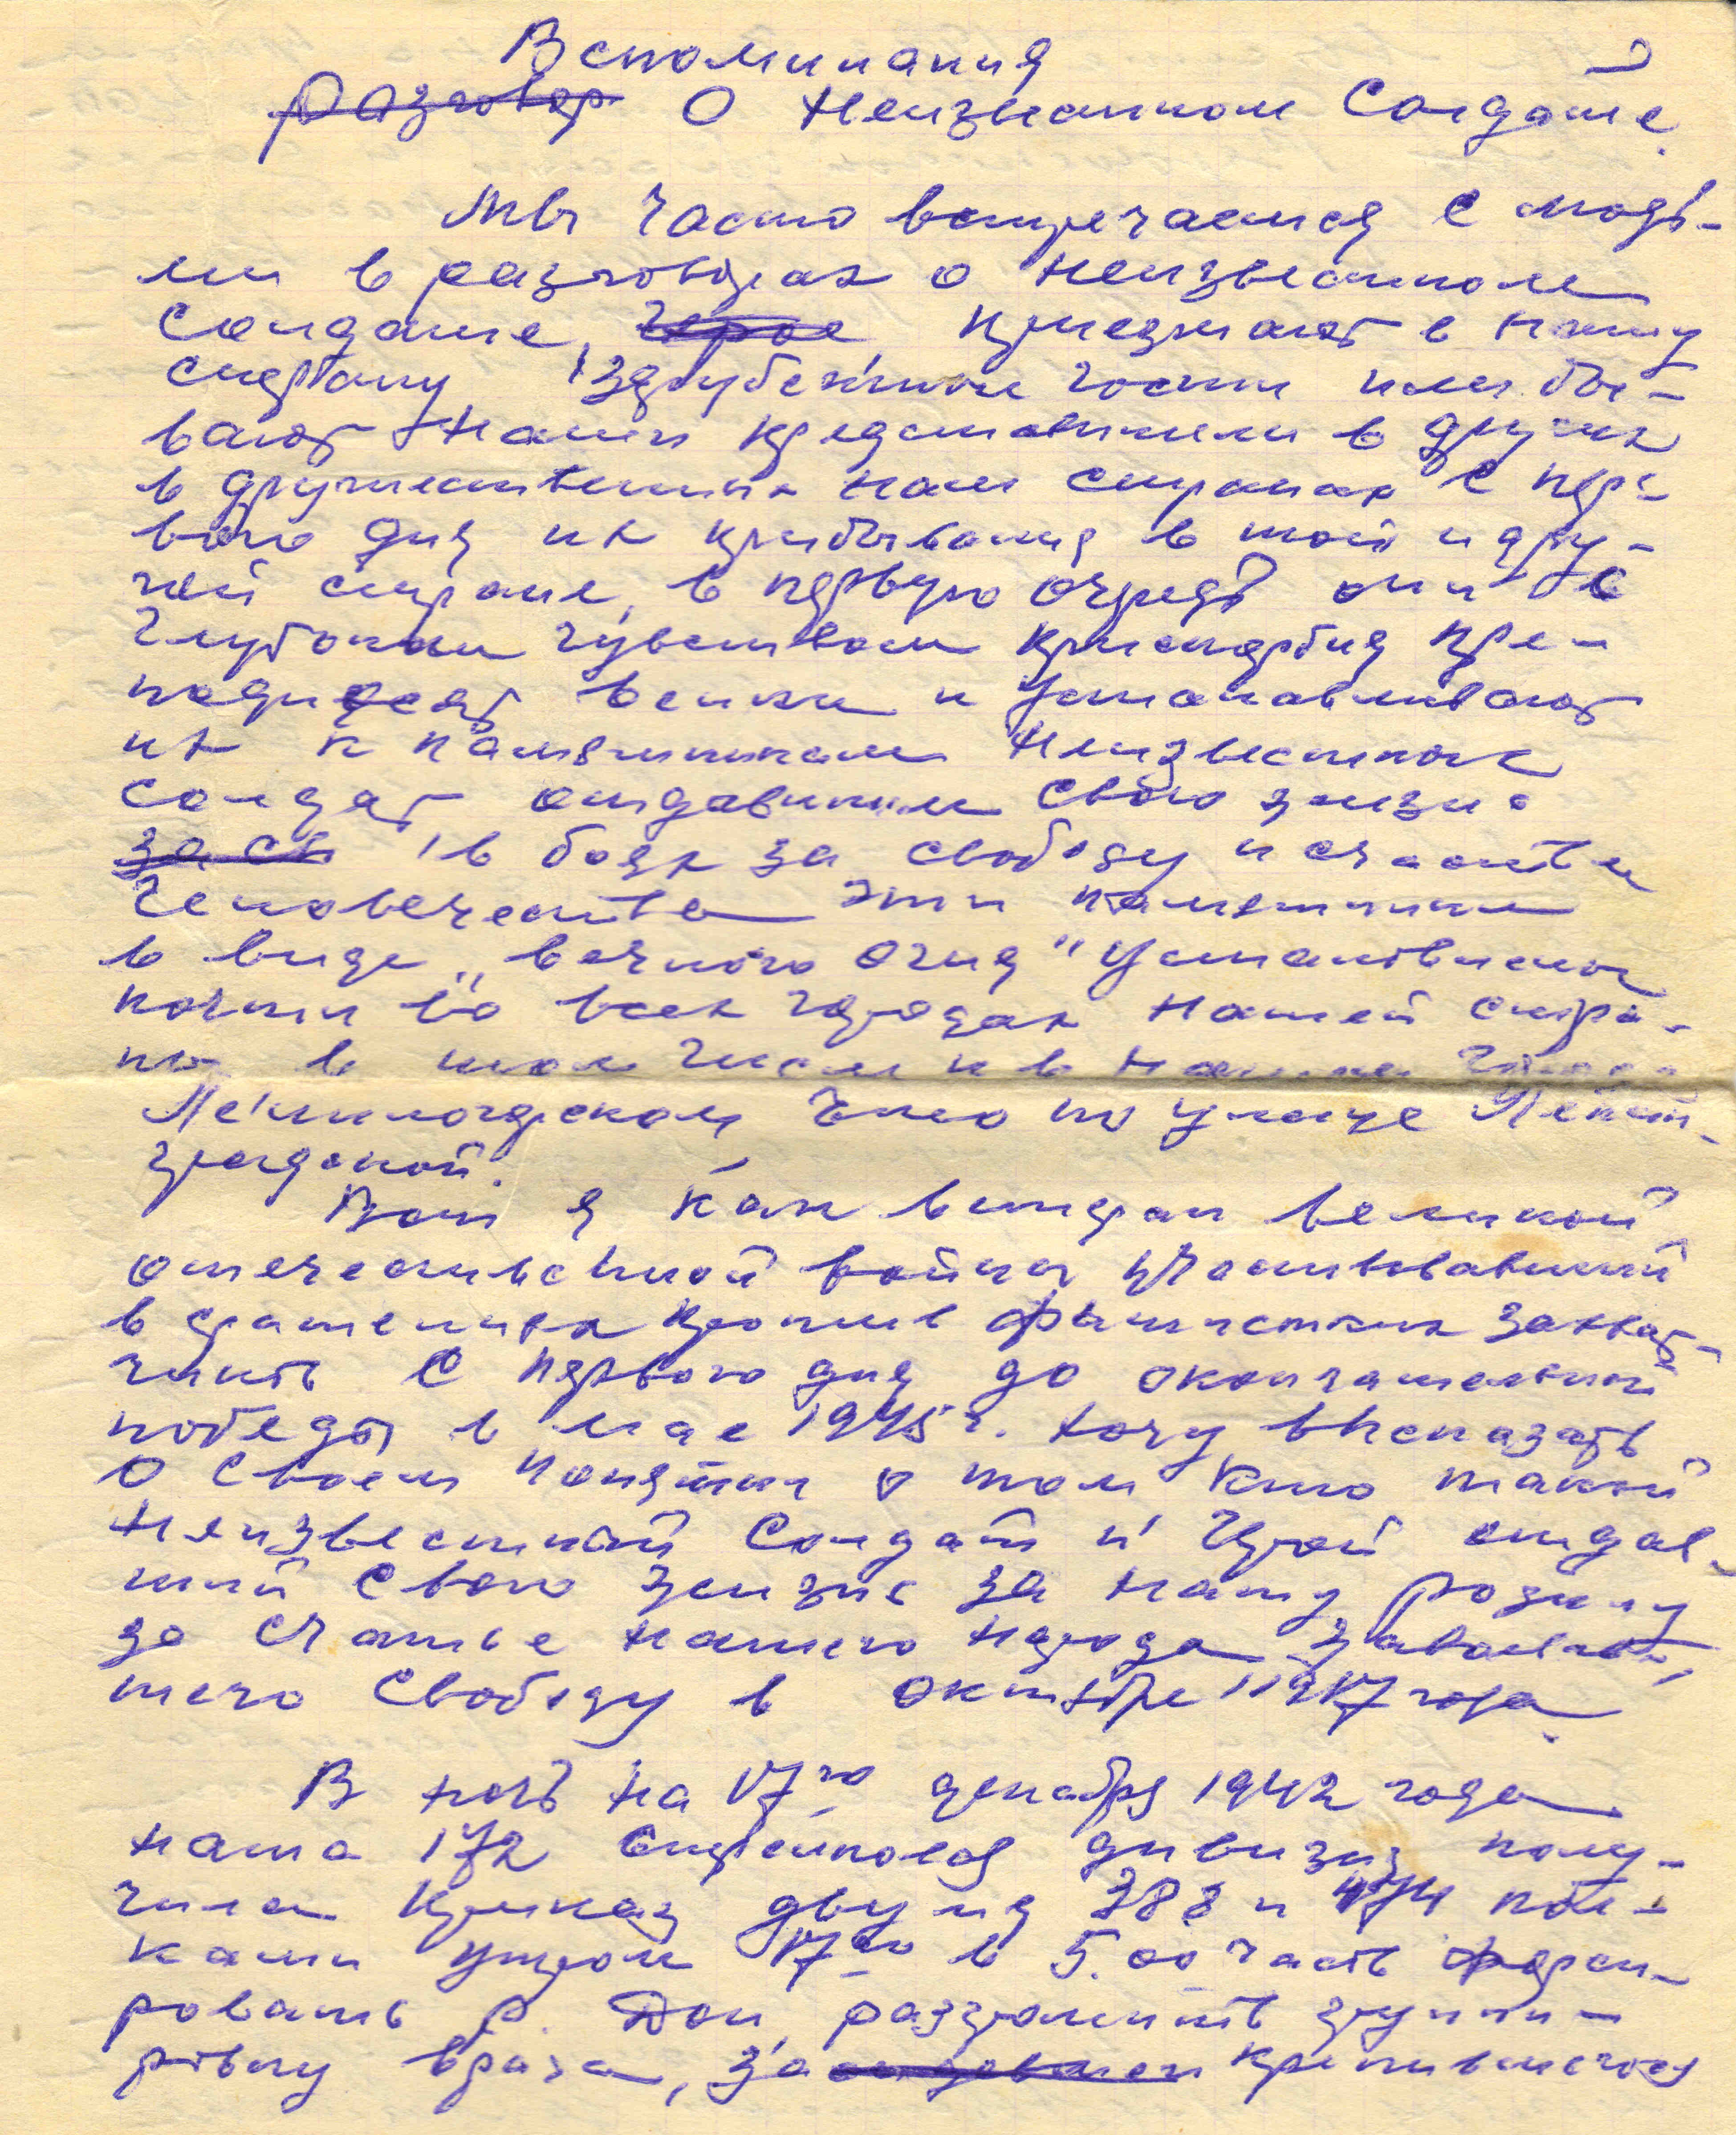 Вспоминания
Разговор О Неизвестном Солдате.
Мы часто встречаемся с людь-
ми в разговорах о неизвестном
солдате, приезжают в нашу
страну зарубежные гости или бы-
вают наши представители в других
в дружественных нам странах с пер-
вого дня их прибывания в той и дру-
гой стране, в первую очередь они с
глубоким чувством прискорбия пре-
подносят венки и устанавливают
их к памятникам Неизвестных
солдат отдавшим свою жизнь
за св в боях за свободу и счастье
Человечества эти памятники
в виде "вечного огня" установлены
почти во всех городах нашей стра-
ны в том числе и в нашем городе
по улице Ленин-
градской.
Вот я как ветеран великой
отечественной войны участвовавший
в сражениях против фашистких захват-
чиков с первого дня до окончательной
победы в мае 1945 г. хочу высказать
о своем понятии о том кто такой
Неизвестный Солдат и Герой отдав-
ший свою жизнь за нашу родину
за счастье нашего народа завоевав-
шего свободу в октябре 1917 года.
В ночь на 17го декабря 1942 года
наша 172 стрелковая дивизия полу-
чила приказ двумя 388 и 474 пол-
ками утром 17го в 5.00 часов форси-
ровать р. Дон, разгромить группи-
ровку врага, за крепившегося